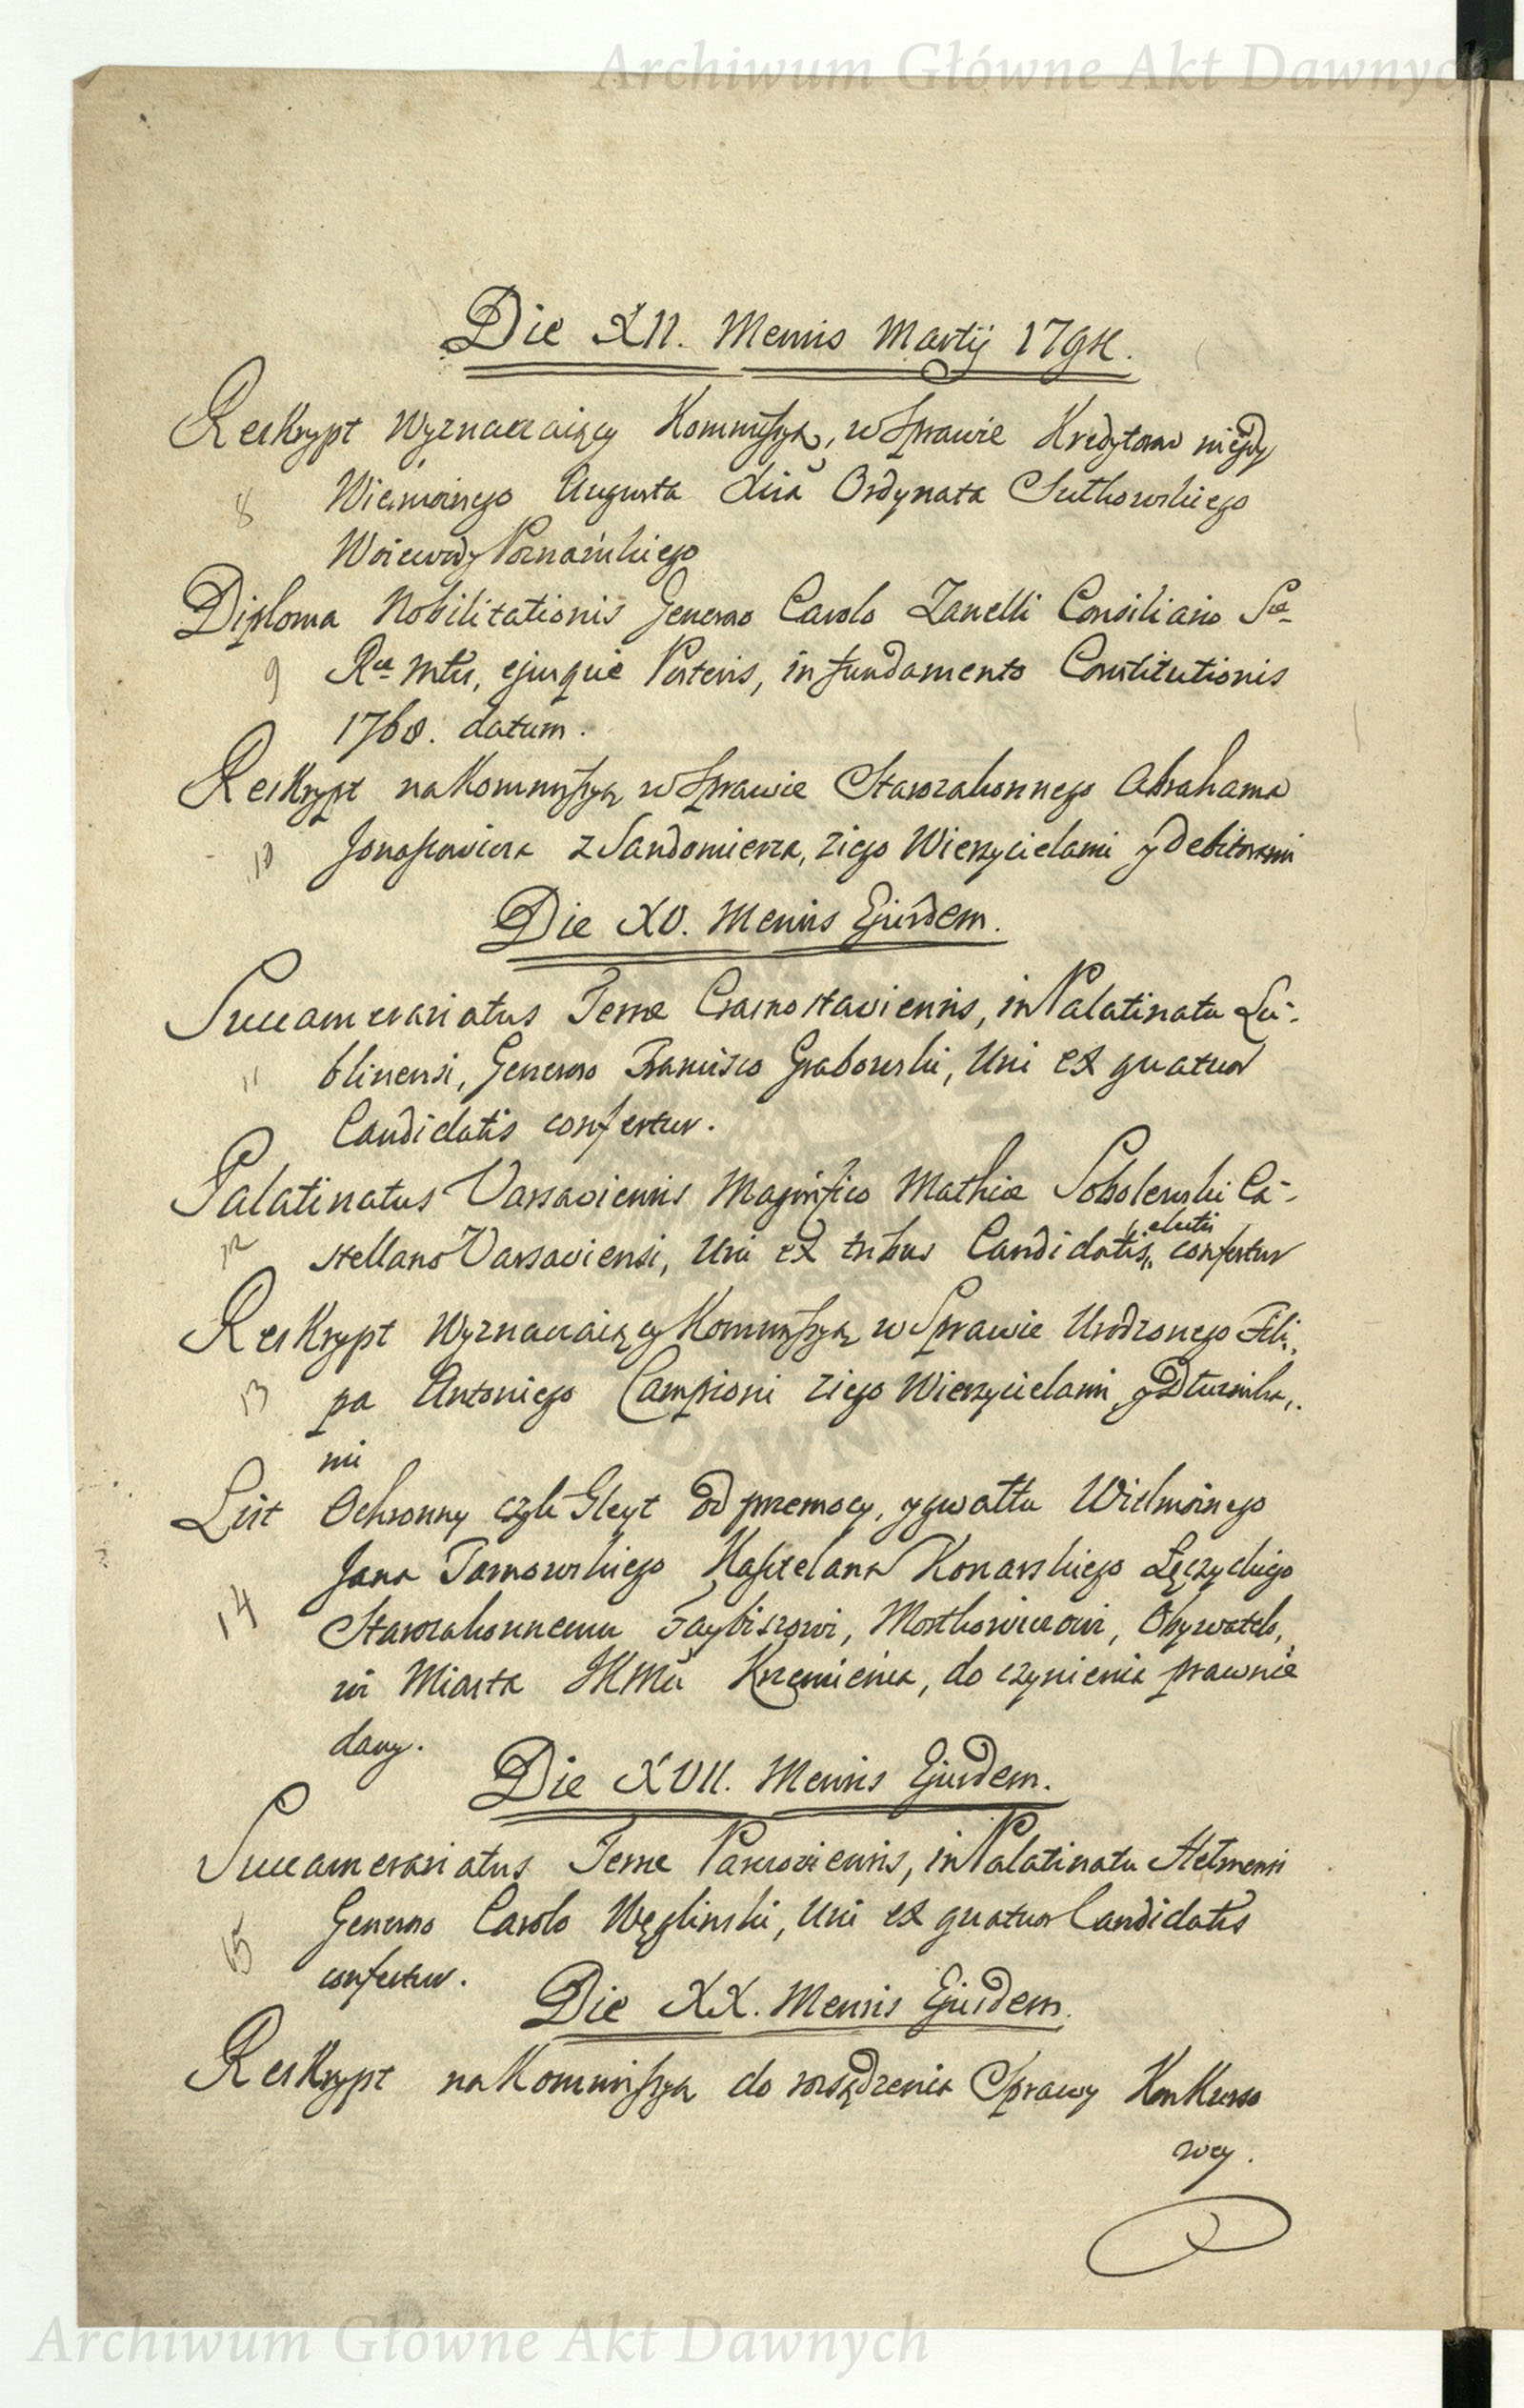 Archiwum Główne Akt Dawnych
Die XII. Mensis Martij
Reskrypt Wyznaczaiący Kommissyą, w Sprawie Kredytorów niegdy
8 Wielmożnego Augusta Xcia Ordynata Sułkowskiego
Woiewody Poznańskiego
Diploma Nobilitationis Generoso Carolo Zanelli Consiliario Sæ
9 Ræ Mtis, ejusque Posteris, in fundamento Constitutionis
1768. datum.
Reskrypt na Kommissyą w Sprawie Starozakonnego Abrahama
10 Jonaszowicza z Sandomierza, z iego Wierzycielami y Debitorami
Die XV. Mensis Ejusdem.
Succamerariatus Terræ Crasnostaviensis, in Palatinatu Lu-
11 blinensi, Generoso Francisco Grabowski, Uni ex quatuor
Candidatis confertur.
Palatinatus Varsaviensis Magnifico Mathiæ Sobolewski Ca-
electis
12 stellano Varsaviensi, Uni ex tribus Candidatis, confertur
Reskrypt Wyznaczaiący Kommissyą w Sprawie Urodzonego Fili,
13 pa Antoniego Campioni z iego Wierzycielami y Dłużnika,
mi
List Ochronny czyli Gleyt od przemocy, y gwałtu Wielmożnego
Jana Tarnowskiego Kasztelana Konarskiego Łęczyckiego
14 Starozakonnemu Faybiszowi, Moszkowiczowi, Obywatelo,
wi Miasta JKMci Krzemieńca, do czynienia prawnie
dany.
Die XVII. Mensis Ejusdem.
Succamerariatus Terræ Parczoviensis, in Palatinatu Chelmensi
15 Generoso Carolo Węgliński, Uni ex quatuor Candidatis
confertur.
Die XX. Mensis Ejusdem.
Reskrypt na Kommissyą do rozsądzenia Sprawy Konkurso
wey.
Archiwum Główne Akt Dawnych